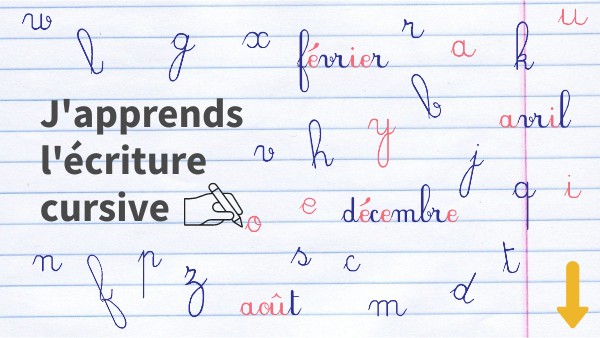 w l g x février r a k u
b avril
J'apprends
l'écriture
cursive
v h y j
o e décembre q i
n f p z s c t
août m d